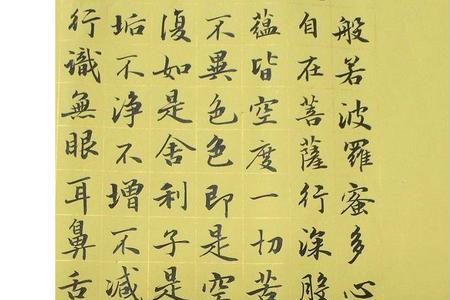 般若波羅蜜多心
自在菩薩行深般
蘊皆空度一切苦
不異色色即是空
復如是舍利子是
垢不淨不增不減
行識無眼耳鼻舌